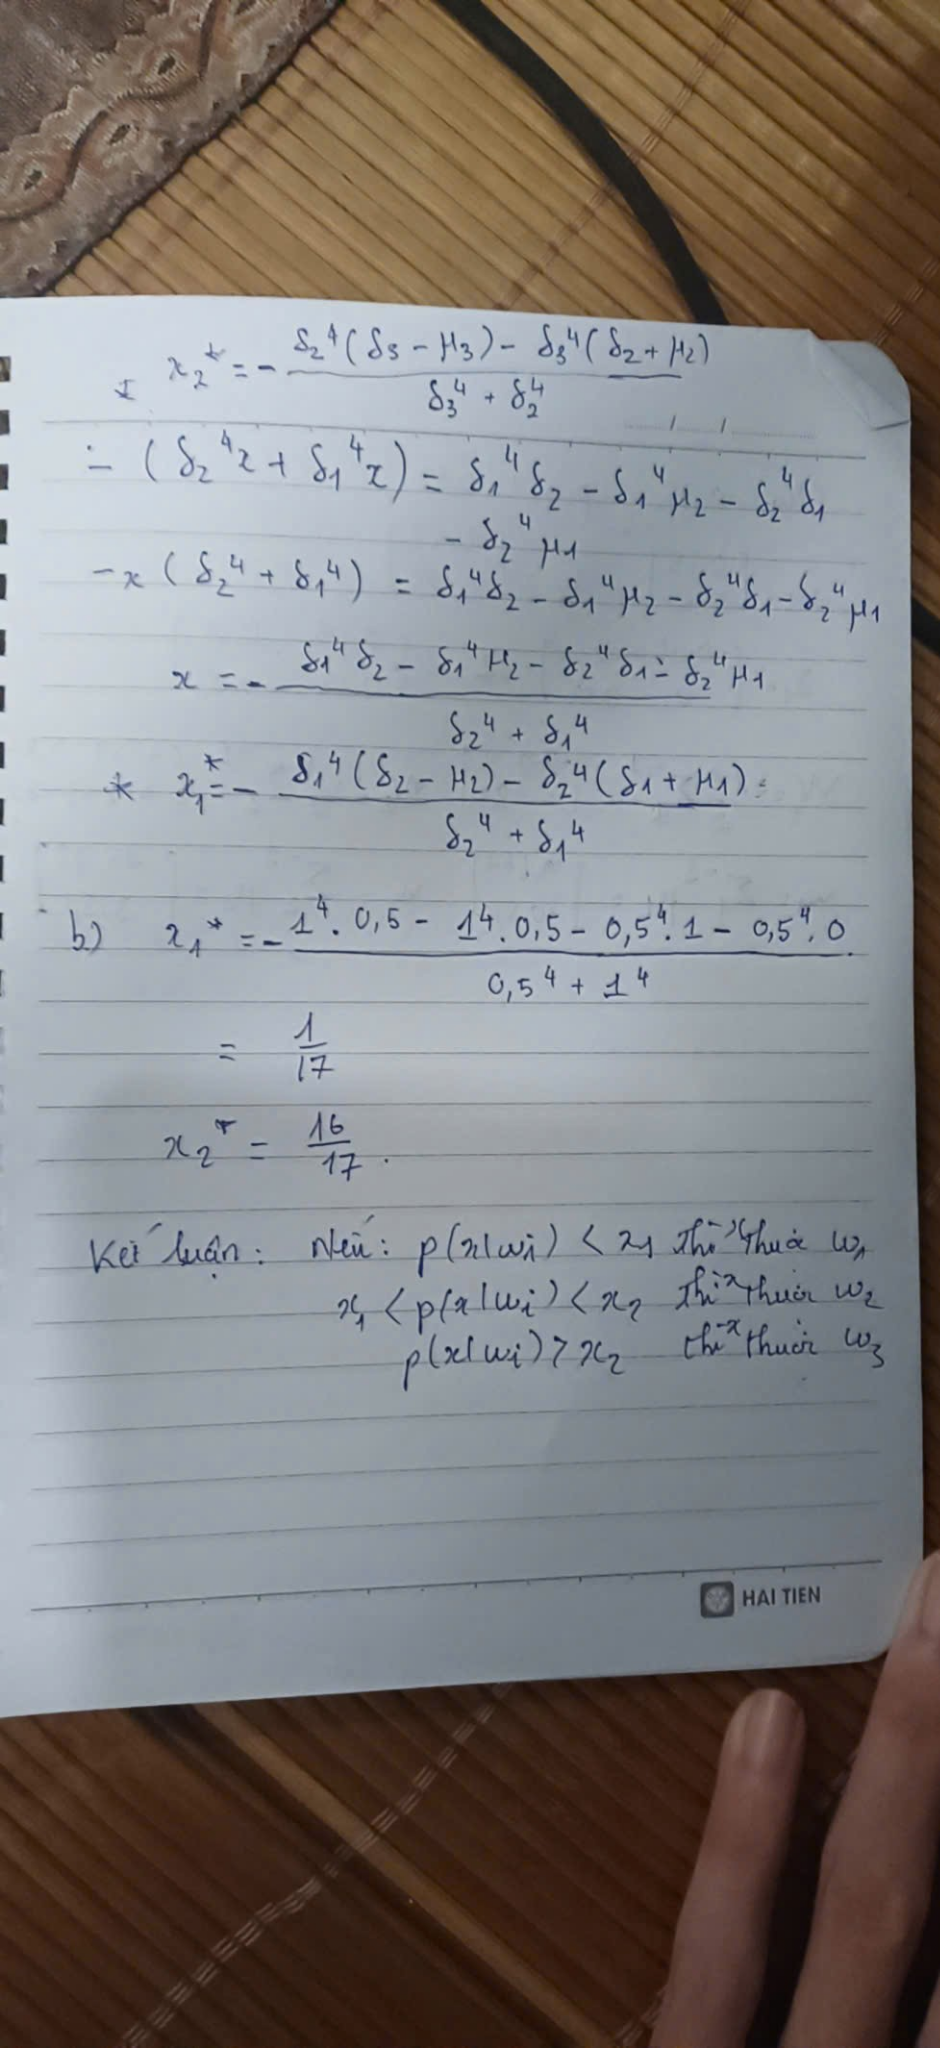 * x₂* = - (δ₂⁴(δ₃ - μ₃) - δ₃⁴(δ₂ + μ₂)) / (δ₃⁴ + δ₂⁴)
- (δ₂⁴x + δ₁⁴x) = δ₁⁴δ₂ - δ₁⁴μ₂ - δ₂⁴δ₁
- δ₂⁴μ₁
-x (δ₂⁴ + δ₁⁴) = δ₁⁴δ₂ - δ₁⁴μ₂ - δ₂⁴δ₁ - δ₂⁴μ₁
x = - (δ₁⁴δ₂ - δ₁⁴μ₂ - δ₂⁴δ₁ - δ₂⁴μ₁) / (δ₂⁴ + δ₁⁴)
* x₁* = - (δ₁⁴(δ₂ - μ₂) - δ₂⁴(δ₁ + μ₁)) / (δ₂⁴ + δ₁⁴)
b) x₁* = - (1⁴. 0,5 - 1⁴. 0,5 - 0,5⁴. 1 - 0,5⁴. 0) / (0,5⁴ + 1⁴)
= 1/17
x₂* = 16/17.
Kết luận: Nếu: p(x|wi) < x₁ thì x thuộc w₁
x₁ < p(x|wi) < x₂ thì x thuộc w₂
p(x|wi) > x₂ thì x thuộc w₃
HAI TIEN